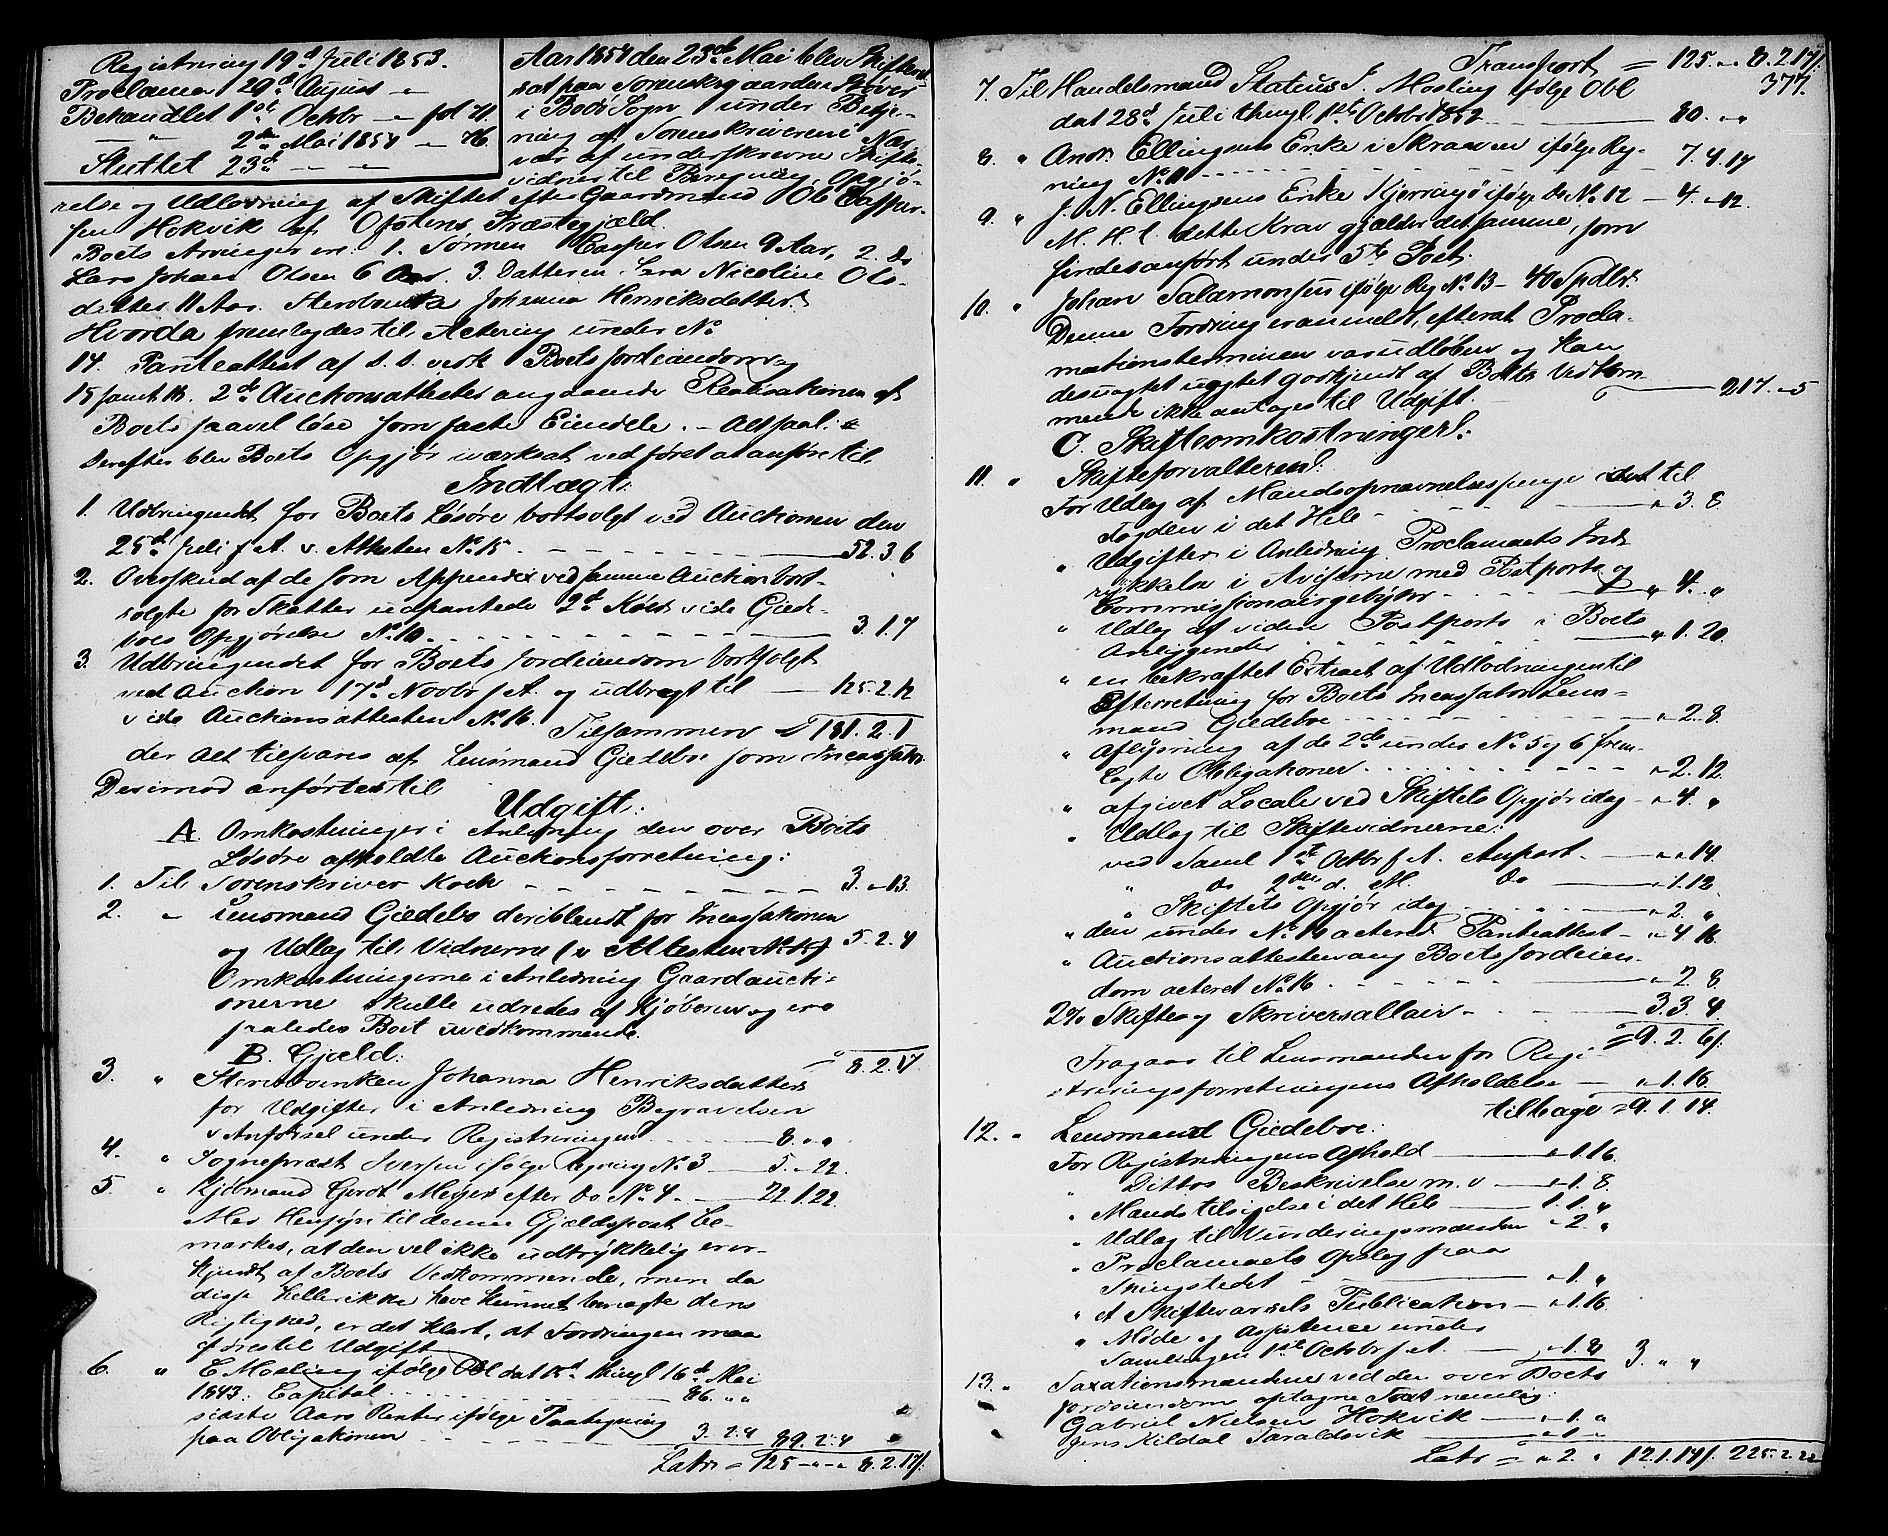 Registrering 19d Juli 1853.
Proclama 29d August "
Behandlet 1ste Octbr " fol 71.
" 2den Mai 1854 " 76.
Sluttet 23d " "
Aar 1854 den 23de Mai blev Skifteret
sat paa Sorenskrivergaarden Støver
i Bodø Sogn under Betje-
ning af Sorenskriveren i Nær-
vær af underskrevne Skifte-
vidner til Beregning, Opgjø-
relse og Udlodning af Skiftet efter Gaardmand Ole Casper-
sen Hokvik af Ofotens Præstegjæld.
Boets Arvinger ere: 1. Sønnen Casper Olsen 9 Aar, 2. Do
Lars Johan Olsen 6 Aar. 3. Datteren Sara Nicoline Ols-
datter 11 Aar. Sterbenke Johanna Henriksdatter.
Hvorda fremlagdes til Actering under No
14. Panteattest af d. D. vedk Boets Jordeiendom,
15 samt 16. 2de Auctionsattester angaaende Realisationen af
Boets saavel løse som faste Eiendele. - Alt saal:
Derefter blev Boets Opgjør iværksat ved først at anføre til
Indtægt:
1. Udbringendet for Boets Løsøre bortsolgt ved Auctionen den
25d Juli f A. v. Attesten No 15. 52.3.6
2. Overskud af de som Appendix ved samme Auction bort-
solgte for Skatter udpantede 2de Køer vide Giæde-
boes Opgjørelse No 10. 3.1.7
3. Udbringendet for Boets Jordeiendom bortsolgt
ved Auction 17d Novbr f A. og udbragt til 125.2.12
vide Auctionsattesten No 16.
Tilsammen 181.2.1
der Alt tilsvares af Lensmand Giædebo som Incassator
Derimod anførtes til
Udgift:
A. Omkostninger i Anledning den over Boets
Løsøre afholdte Auctionsforretning:
1. Til Sorenskriver Koch 3. " 13.
2. " Lensmand Giædebo deriblandt for Incassationen
og Udlæg til Vidnerne (v Attesten No 15) 5.2.4
Omkostningerne i Anledning Gaardaucti-
onerne skulle udredes af Kjøberen og ere
saaledes Boet uvedkommende.
8.2.17
B. Gjæld:
3. " Sterbenken Johanna Henriksdatter
for Udgifter i Anledning Begravelsen
v Anførsel under Registreringen 8. " "
4. " Sogneprest Iversen ifølge Regning No 3 5. " 22.
5. " Kjøbmand Gerdt Meyer efter Do No 4. 22.1.22
Med Hensyn til denne Gjældspost be-
mærkes, at den vel ikke udtrykkelig er er-
kjendt af Boets Vedkommende, men da
disse hellerikke have kunnet benægte dens
Rigtighed, er det klart, at Fordringen maa
føres til Udgift
6. " C Mosling ifølge Obl dat 15d thingl 16d Mai
1843: Capital 86. " "
sidste Aars Renter ifølge Paategning
paa Obligationen 3.2.4 89.2.4
Latr = 125 " " 8.2.17/.
Transport = 125. " " 8.2.17/.
7. Til Handelsmand Statius J. Mosling ifølge Obl 377.
dat 28d Juli thingl 1ste Octbr 1852 80. " "
8. " Andr. Ellingsens Enke i Skraaven ifølge Reg-
ning No 11 7.4.17
9. " J. N. Ellingsens Enke Kjerringø ifølge Do No 12 4. " 12.
M. H. t. dette Krav gjælder det samme, som
findes anført under 5te Post.
10. " Johan Salamonsen ifølge Reg No 13 - 40 Spdlr.
Denne Fordring er anmeldt, efterat Procla-
mationsterminen var udløben og kan
desuagtet uagtet godkjendt af Boets Vedkom-
mende ikke antages til Udgift. 217. " 5
C. Skifteomkostninger:
11. " Skifteforvalteren:
For Udlæg af Mandsopnævnelsespenge i det til
Fogden i det Hele " 3. 8.
" Udgifter i Anledning Proclamaets Ind-
rykkelse i Aviserne med Postporto og
Commissionairgebyhr " 4. "
" Udlæg af videre Postporto i Boets
Anliggender " 1. 20.
" en bekræftet Extract af Udlodningen til
Efterretning for Boets Incassator Lens-
mand Giædeboe " 2. 8.
" Aflysning af de 2de under No 5 og 6 frem-
lagte Obligationer " 2. 12.
" afgivet Locale ved Skiftets Opgjør idag " 4. "
" Udlæg til Skiftevidnerne:
ved Saml 1ste Octbr f A. Anpart. " " 14.
" Do 2den d. M. Do " 1. 12
" Skiftets Opgjør idag " 2. "
" den under No 14 acterede Panteattest " 4 16
" Auctionsattesten ang Boets Jordeien-
dom acteret No 16 " 2 8.
2% Skifte og Skriversallair 3.3.4
= 9.2.6/.
Fragaar til Lensmanden for Regi-
streringsforretningens Afholdelse " 1. 16
tilbage = 9.1.14.
12. " Lensmand Giædeboe:
For Registreringens Afhold " 1. 16.
" Dittos Beskrivelse m. v " 1. 8.
" Mandstilsigelse i det Hele 1.1. "
" Udlæg til Vurderingsmænden " 2 "
" Proclamaets Opslag paa
Thingstedet " 1. "
" et Skiftevarsels Publication " 1.16
" Møde og Assistence under
Samlingen 1ste Octbr f A. " 1. 8 3. " "
13. " Taxationsmændene ved den over Boets
Jordeiendom optagne Taxt nemlig:
Gabriel Nielsen Hokvik " 1. "
Jens Kildal Taraldsvik " 1 "
Latr = " 2. " 12.1.14/. 225.2.22